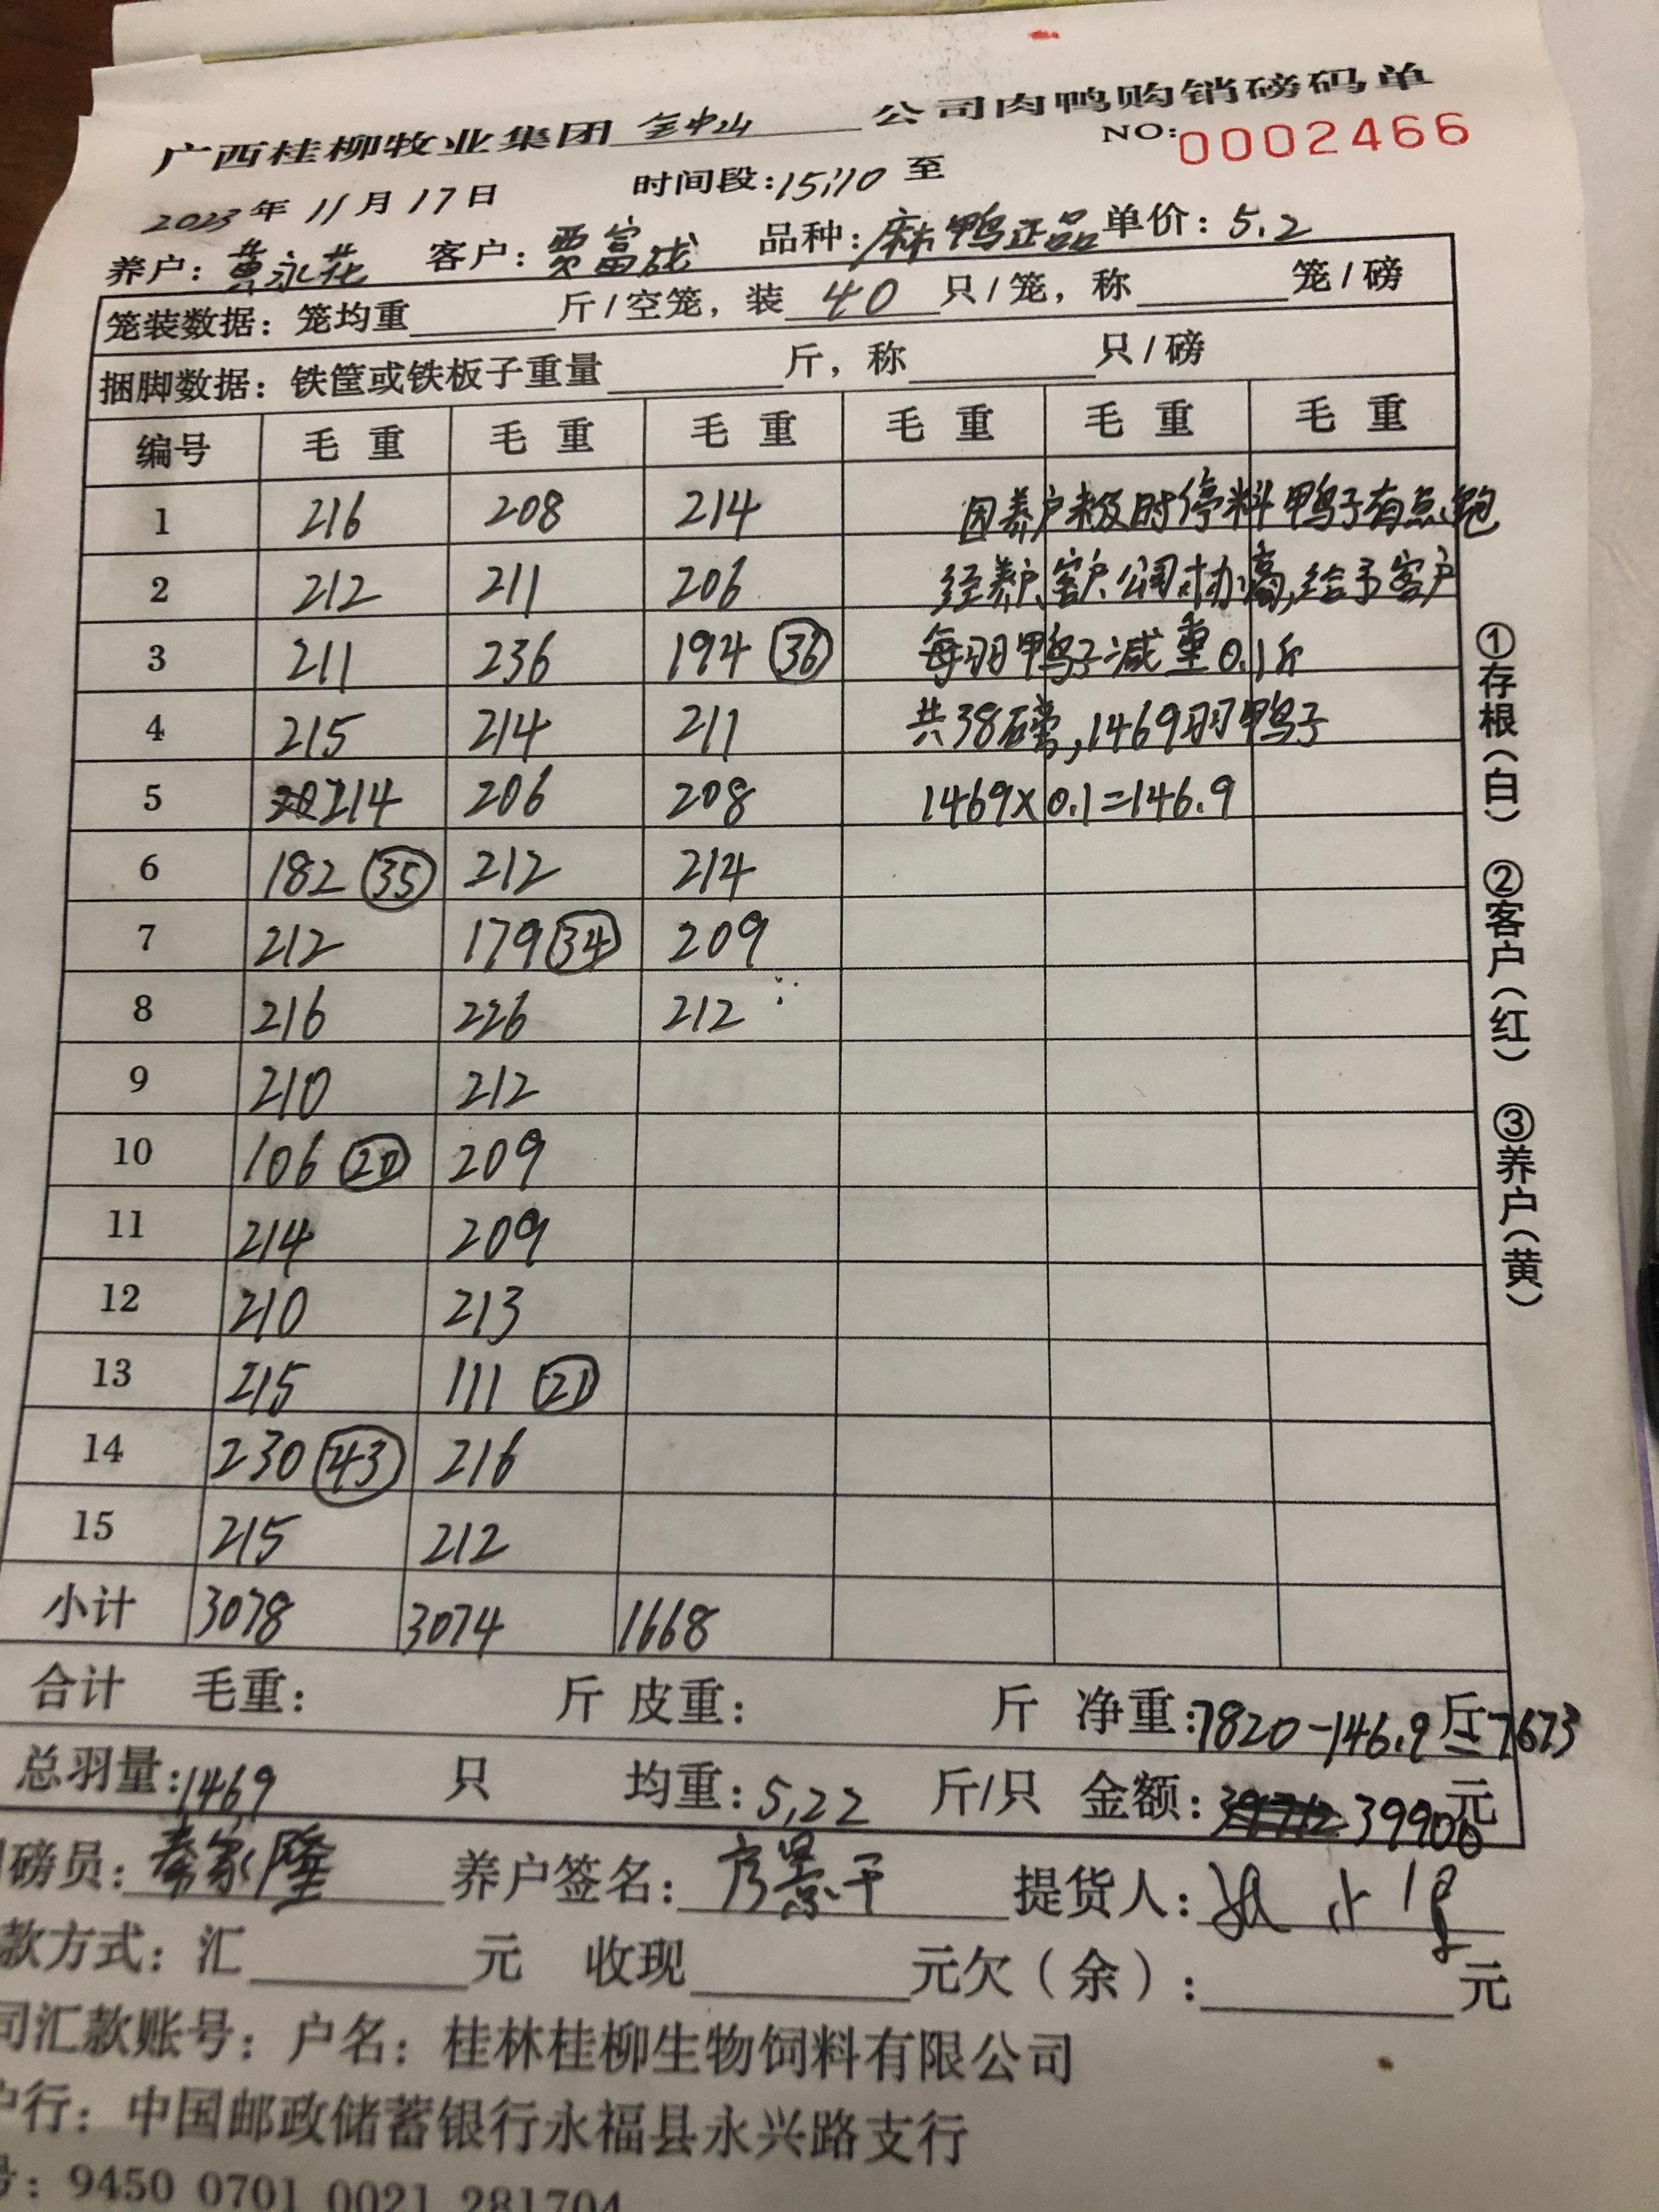 广西桂柳牧业集团 金中山 公司肉鸭购销磅码单
NO:0002466
2023年 11月 17日 时间段:15:10 至
养户: 黄永花 客户: 贾富成 品种: 麻鸭正品 单价: 5.2
笼装数据: 笼均重 斤/空笼, 装 40 只/笼, 称 笼/磅
捆脚数据: 铁筐或铁板子重量 斤, 称 只/磅
编号 毛重 毛重 毛重 毛重 毛重 毛重
1 216 208 214 因养户未及时停料鸭子有点饱
2 212 211 206 经养户、客户、公司协商,给予客户
3 211 236 194 (36) 每羽鸭子减重0.1斤
4 215 214 211 共38磅,1469羽鸭子
5 214 206 208 1469×0.1=146.9
6 182 (35) 212 214
7 212 179 (34) 209
8 216 226 212
9 210 212
10 106 (20) 209
11 214 209
12 210 213
13 215 111 (21)
14 230 (43) 216
15 215 212
小计 3078 3074 1668
合计 毛重: 斤 皮重: 斤 净重:7820-146.9斤=7673
总羽量:1469 只 均重:5.22 斤/只 金额: 39900元
磅员: 秦家隆 养户签名: 提货人:
款方式: 汇 元 收现 元欠(余): 元
司汇款账号: 户名: 桂林桂柳生物饲料有限公司
户行: 中国邮政储蓄银行永福县永兴路支行
号: 9450 0701 0021 281704
①存根(白) ②客户(红) ③养户(黄)